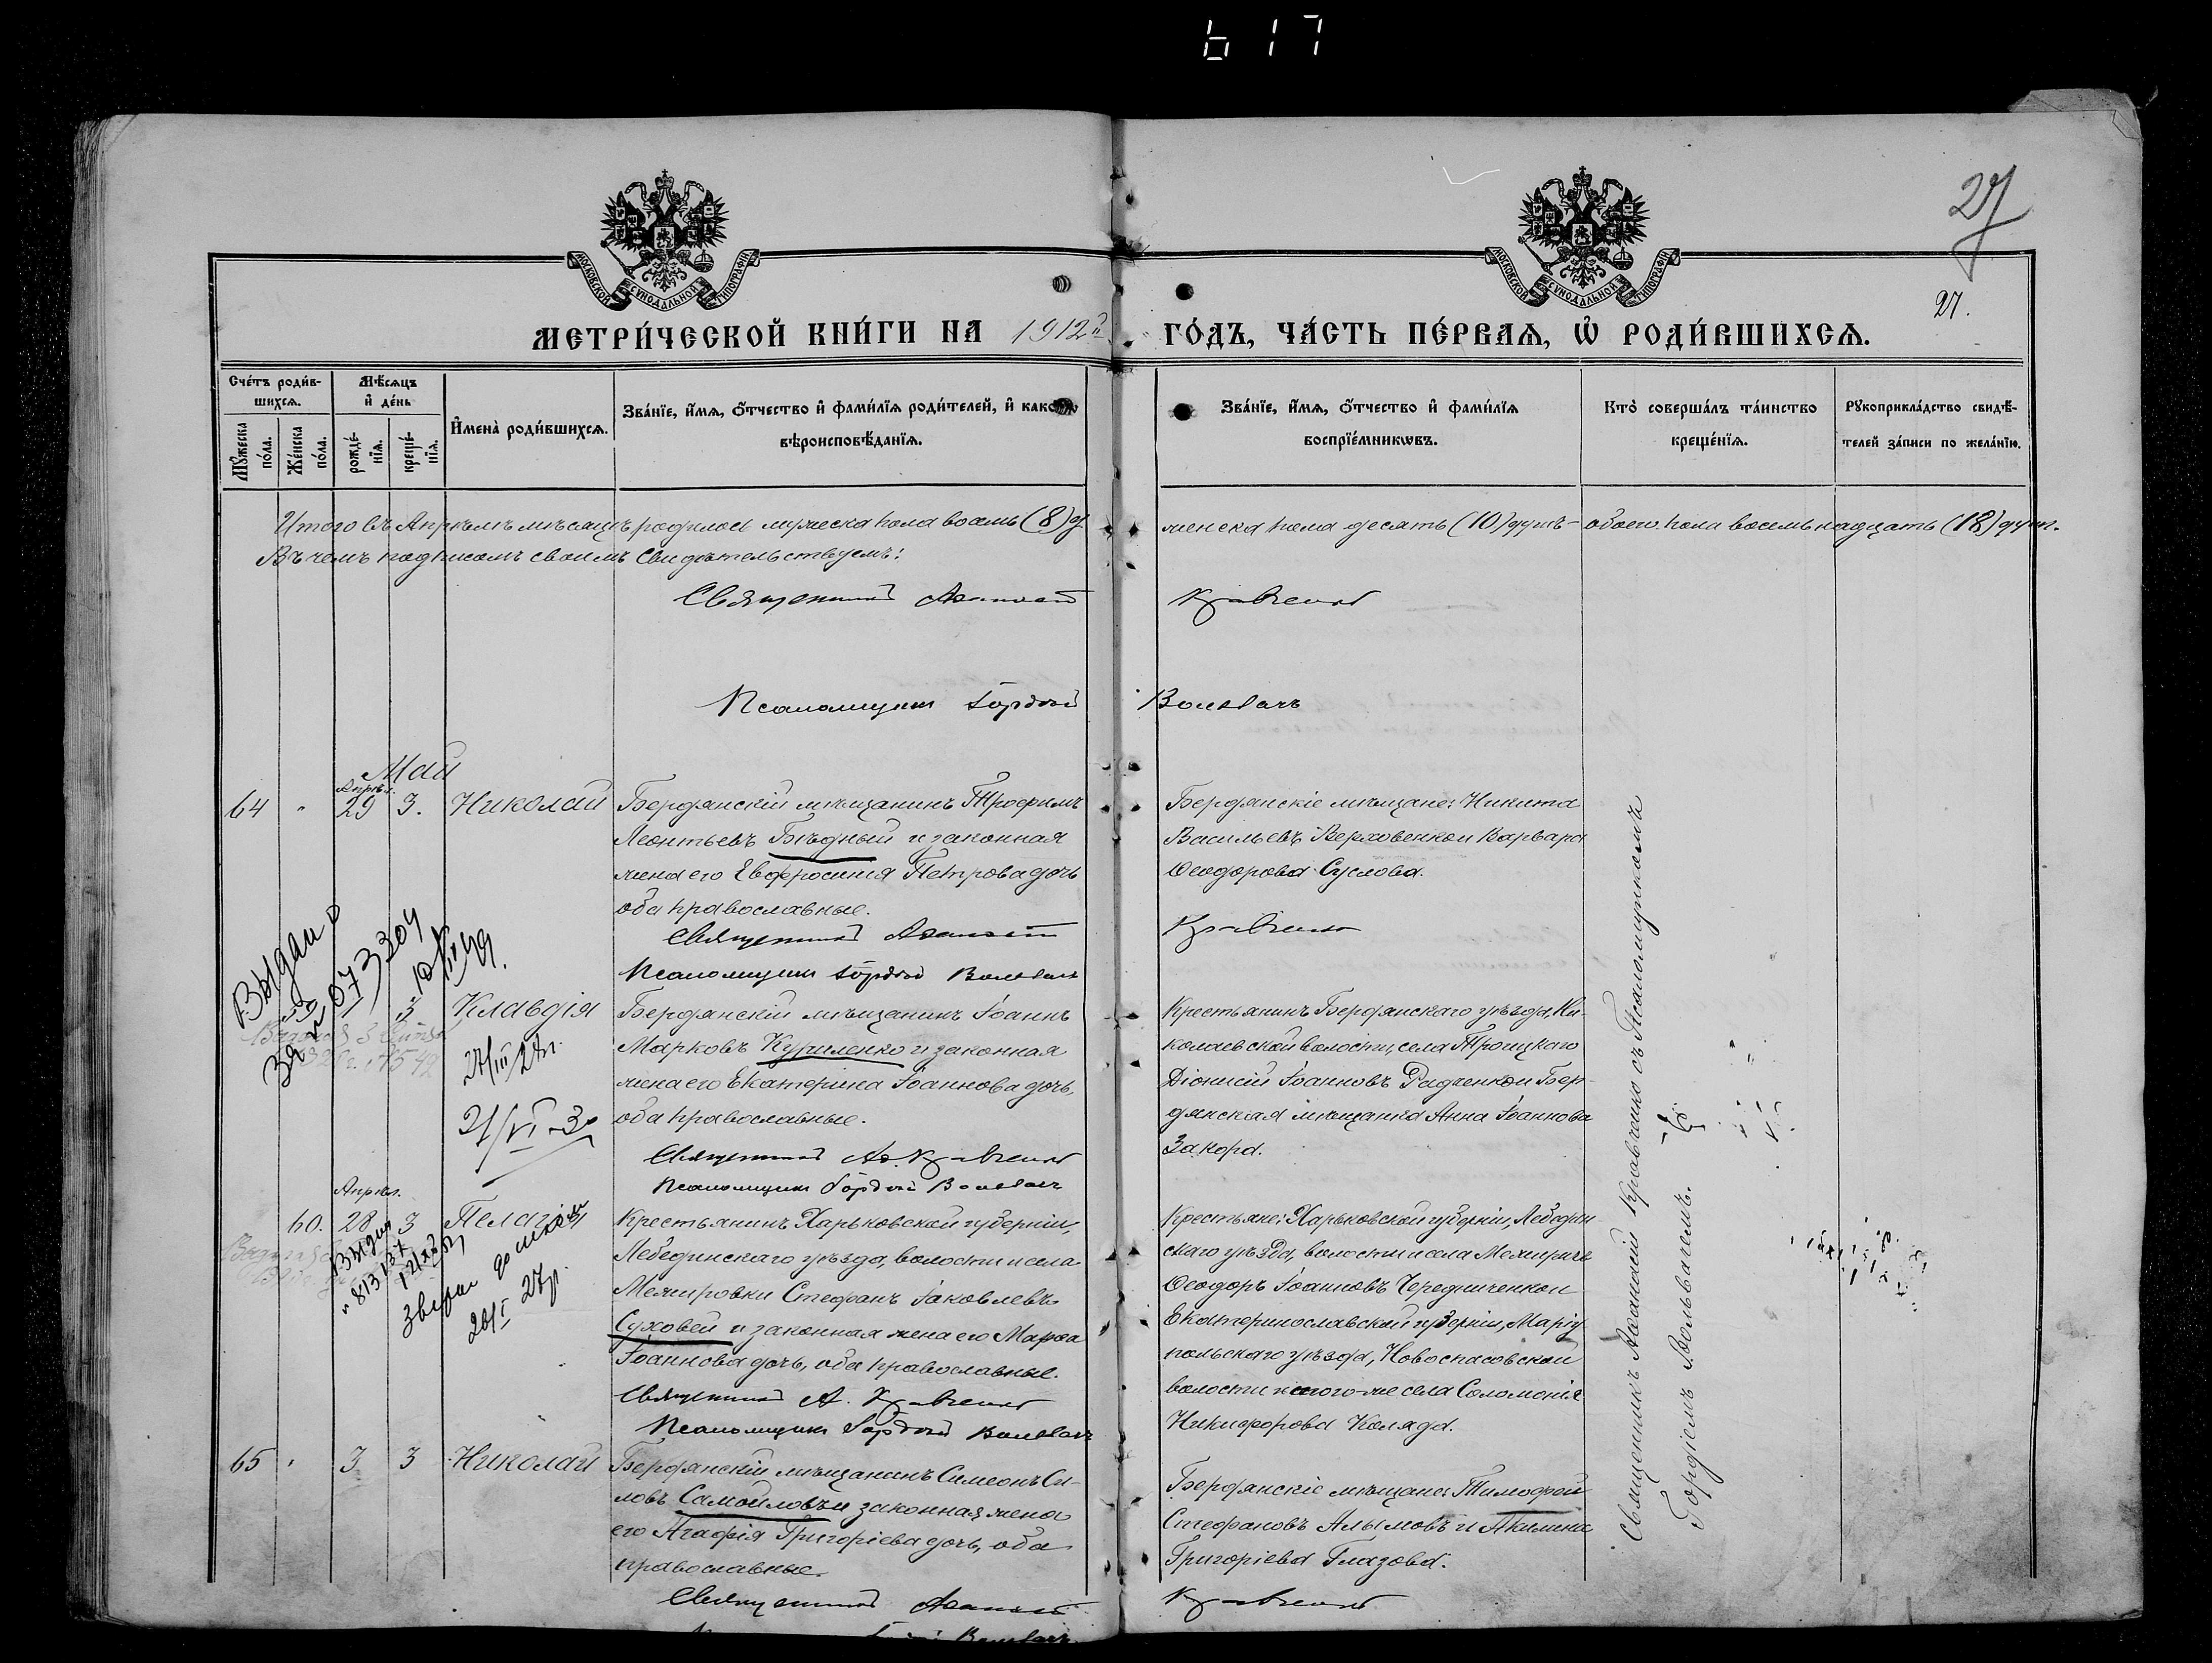 617
27
27.
МОСКОВСКОЙ СѴНОДАЛЬНОЙ ТИПОГРАФІИ
МОСКОВСКОЙ СѴНОДАЛЬНОЙ ТИПОГРАФІИ
МЕТРИ́ЧЕСКОЙ КНИ́ГИ НА 1912й ГО́ДЪ, ЧА́СТЬ ПЕ́РВАѦ, Ѡ РОДИ́ВШИХСѦ.
Сче́тъ роди́в-
шихсѧ.
Мꙋжеска по́ла.
Же́нска по́ла.
Мѣ́сѧцъ
и де́нь
рожде́-
нїѧ.
креще́-
нїѧ.
И҆мена̀ роди́вшихсѧ.
Зва́нїе, и҆́мѧ, ѻ҆́тчество и҆ фами́лїѧ роди́телей, и҆ какого
вѣроисповѣ́данїѧ.
Зва́нїе, и҆́мѧ, ѻ҆́тчество и҆ фами́лїѧ
воспрїе́мникѡвъ.
Кто̀ соверша́лъ та́инство
креще́нїѧ.
Рꙋкоприкла́дство свидѣ́-
телей за́писи по жела́нїю.
Итого въ Апрѣлѣ мѣсяцѣ родилось мужеска пола восемь (8) д. женска пола десять (10) душъ - обоего пола восемьнадцать (18) душ.
Въ чемъ подписомъ своимъ свидѣтельствуемъ:
Священникъ Аѳанасій Кравченко
Псаломщикъ Гордій Вольвачъ
Май
64 " Апрѣл. 29 3. Николай
Бердянскій мѣщанинъ Трофимъ
Леонтьевъ Бѣдный и законная
жена его Евфросинія Петрова дочь
оба православные.
Священникъ Аѳанасій Кравченко
Псаломщикъ Гордій Вольвачъ
Бердянскіе мѣщане: Никита
Васильевъ Верховенко и Варвара
Ѳеодорова Суслова.
Выдано
073304
59 3 Клавдія
27/III 27г.
21/VI-30
Бердянскій мѣщанинъ Іоаннъ
Марковъ Куриленко и законная
жена его Екатерина Іоаннова дочь,
оба православные.
Священникъ Аѳ. Кравченко
Псаломщикъ Гордій Вольвачъ
Крестьянинъ Бердянскаго уѣзда, Ни-
колаевской волости, села Троицкаго
Діонисій Іоанновъ Радченко и Бер-
дянская мѣщанка Анна Іоаннова
Закора.
60. Апрѣл. 28 3 Пелагія
20/I 27г.
Крестьянинъ Харьковской губерніи,
Лебединскаго уѣзда, волости и села
Межировки Стефанъ Іаковлевъ
Суховей и законная жена его Марѳа
Іоаннова дочь, оба православные.
Священникъ А. Кравченко
Псаломщикъ Гордій Вольвачъ
Крестьяне: Харьковской губерніи, Лебедин
скаго уѣзда, волости и села Межирича
Ѳеодоръ Іоанновъ Чередниченко и
Екатеринославской губерніи, Маріу
польскаго уѣзда, Новоспасовской
волости и того-же села Соломонія
Никифорова Коляда.
65 " 3 3 Николай
Бердянскій мѣщанинъ Симеонъ Си-
ловъ Самойловъ и законная жена
его Агафія Григоріева дочь, оба
православные.
Священникъ Аѳанасій Кравченко
Бердянскіе мѣщане: Тимоѳей
Стефановъ Алымовъ и Акилина
Григоріева Глазова.
Священникъ Аѳанасій Кравченко съ Псаломщикомъ
Гордіемъ Вольвачемъ.